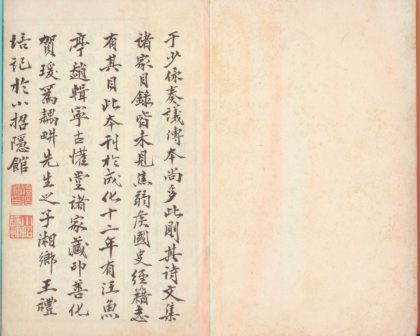 于少保奏議傳本尚多此則其詩文集
諸家目錄皆未見焦弱矦國史經籍志
有其目此本刊於成化十二年有汪魚
亭趙輯寧古懽堂諸家藏印善化
賀瑗爲耦畊先生之子湘鄉王禮
培記於小招隱館